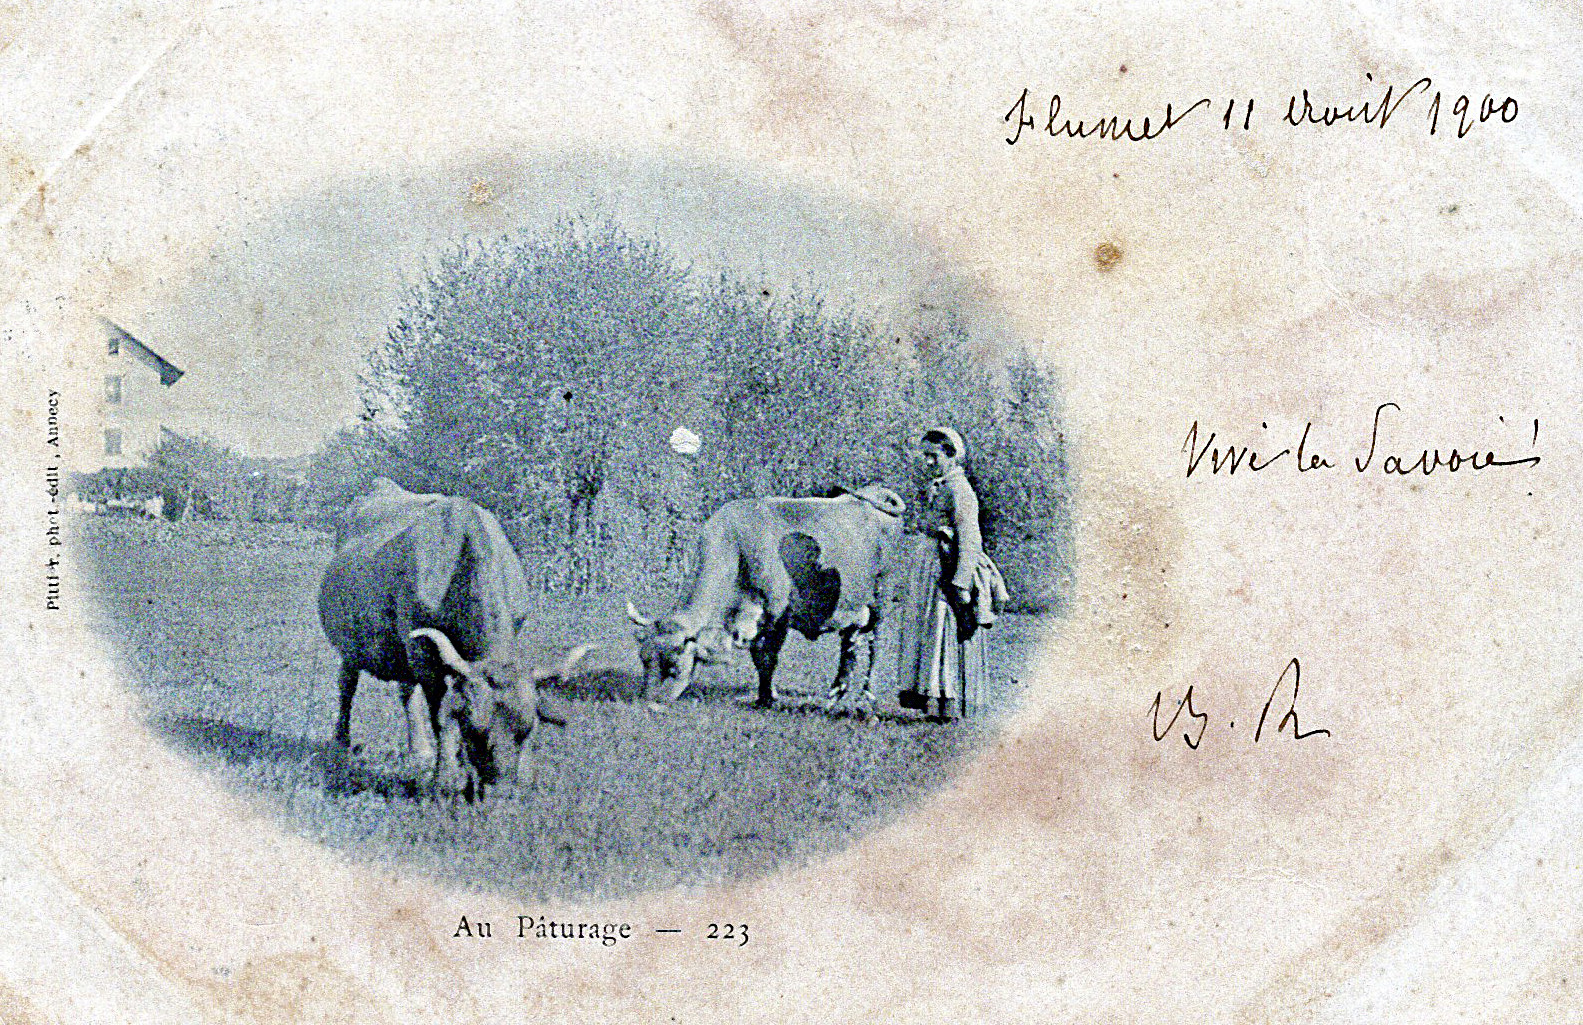 Flumet 11 Août 1900
Vive la Savoie!
Pittier, phot.-édit., Annecy
Au Pâturage — 223